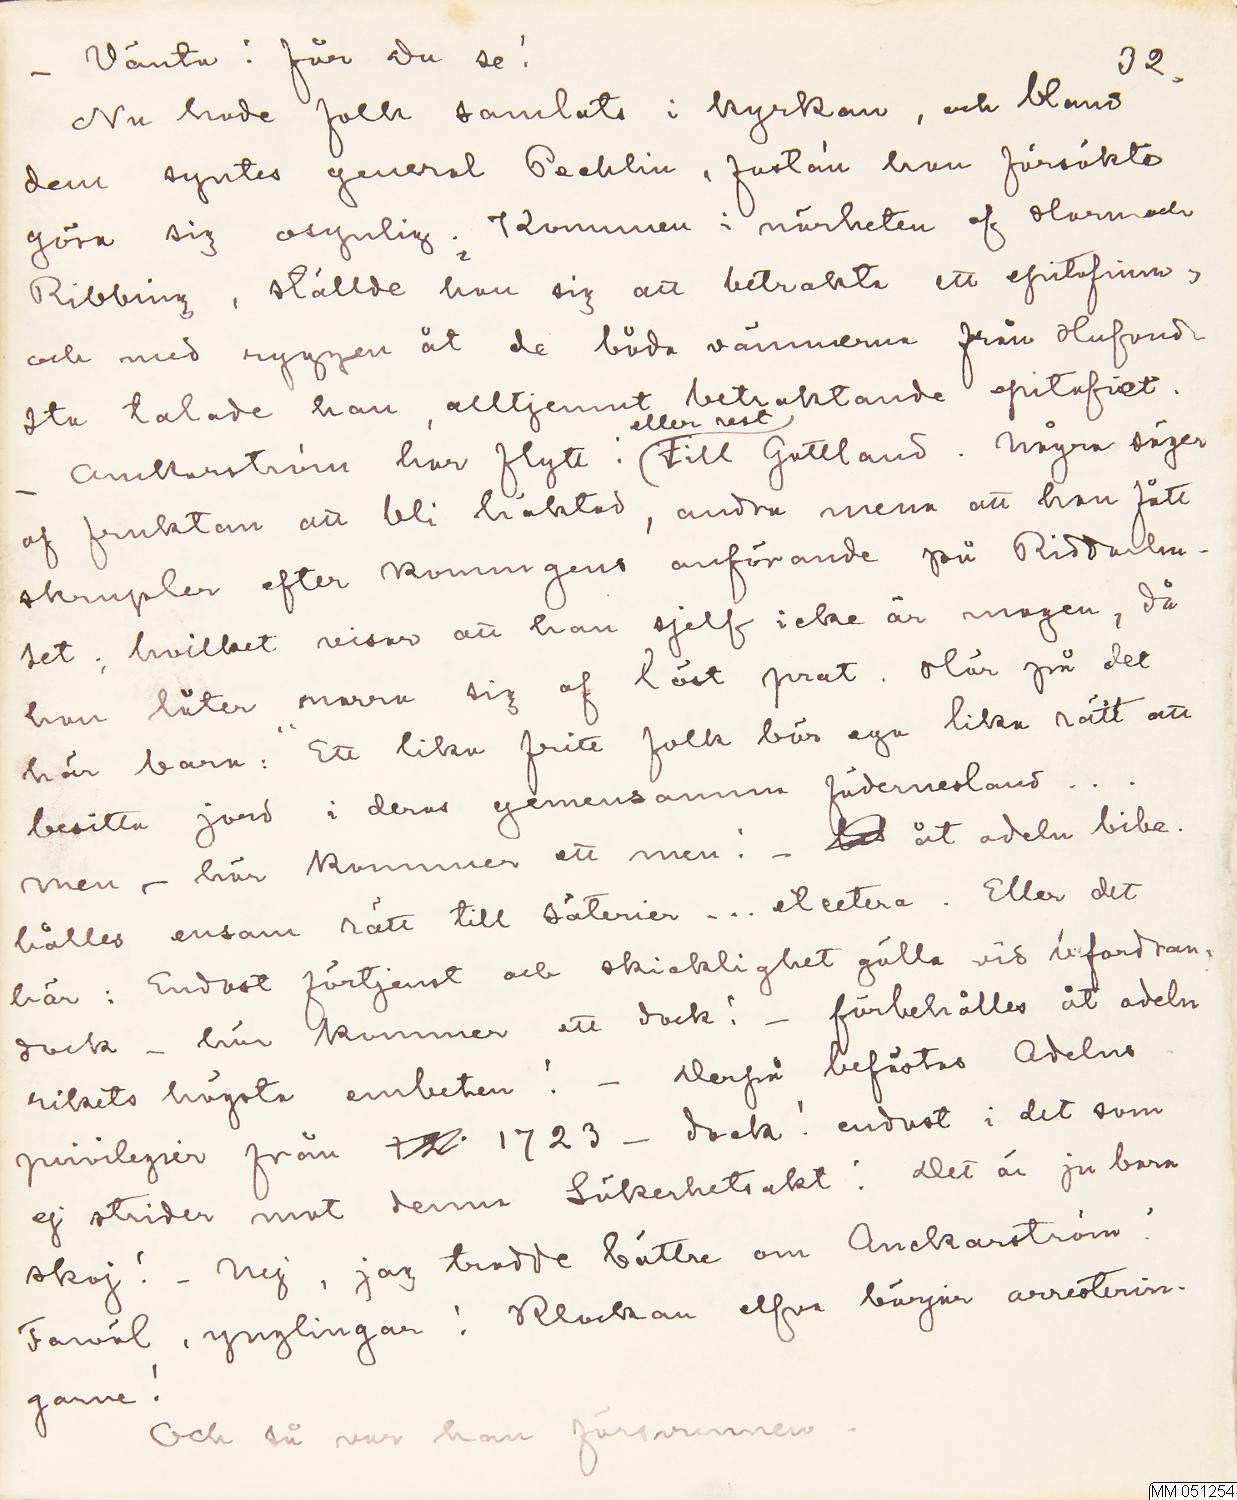 32.
– Vänta! får du se!
Nu hade folk samlats i kyrkan, och bland
dem syntes general Pechlin, fastän han försökte
göra sig osynlig. Kommen i närheten af Horn och
Ribbing, ställde han sig att betrakta ett epitafium,
och med ryggen åt de båda vännerna från Hufvud-
sta talade han, alltjemnt betraktande epitafiet.
– Anckarström har flytt! (eller rest)
Till Gottland. Några säger
af fruktan att bli häktad, andra mena att han fått
skrupler efter konungens anförande på Riddarhu-
set; hvilket visar att han sjelf icke är mogen, då
han låter narra sig af löst prat. Hör på det
här bara: "Ett lika fritt folk bör ega lika rätt att
besitta jord i deras gemensamma fädernesland ...
men – här kommer ett men! – åt adeln bibe-
hålles ensam rätt till säterier ... etcetera. Eller det
här: Endast förtjenst och skicklighet gälla vid befordran,
dock – här kommer ett dock! – förbehålles åt adeln
rikets högsta embeten! – Derpå befästas Adelns
privilegier från 1723 – dock! endast i det som
ej strider mot denna Säkerhetsakt! Det är ju bara
skoj! – Nej, jag trodde bättre om Anckarström!
Farväl, ynglingar! Klockan elfva börjar arresterin-
garne!
Och så var han försvunnen.
MM 051254